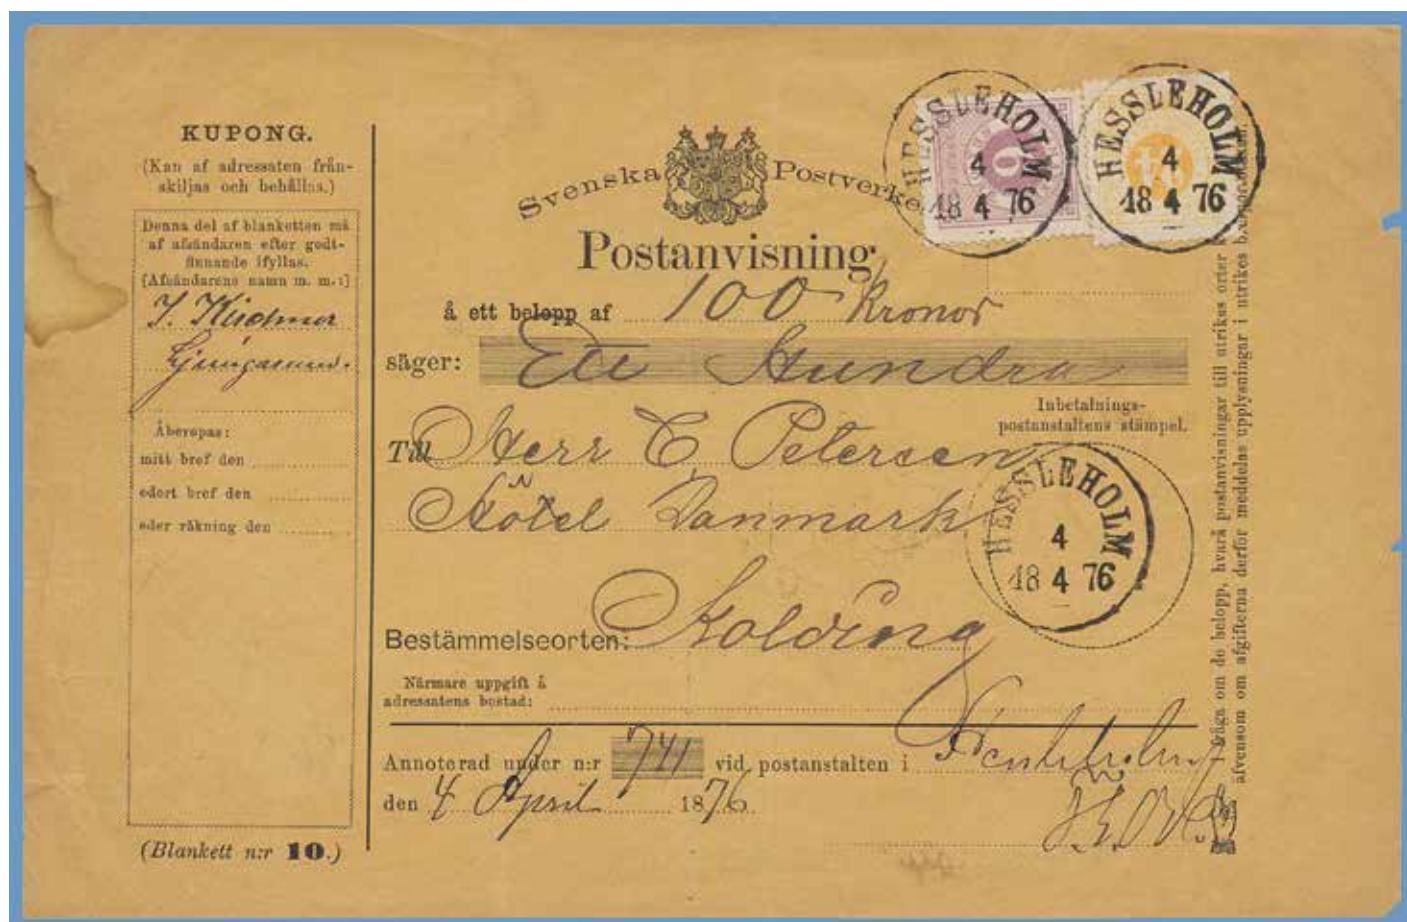 KUPONG.
(Kan af adressaten från-
skiljas och behållas.)
Denna del af blanketten må
af afsändaren efter godt-
finnande ifyllas.
[Afsändarens namn m. m.:]
Åberopas:
mitt bref den
edert bref den
eder räkning den
(Blankett n:r 10.)
Svenska Postverket
Postanvisning
å ett belopp af 100 Kronor
säger: Ett Hundra
Till Herr C Petersen
Hôtel Danmark
Bestämmelseorten: Kolding
Närmare uppgift å
adressatens bostad:
Annoterad under n:r 741 vid postanstalten i
den 4 April 1876
HESSLEHOLM
4
18 4 76
HESSLEHOLM
4
18 4 76
Inbetalnings-
postanstaltens stämpel.
HESSLEHOLM
4
18 4 76
fråga om de belopp, hvarå postanvisningar till utrikes orter
äfvensom om afgifterna derför meddelas upplysningar i utrikes